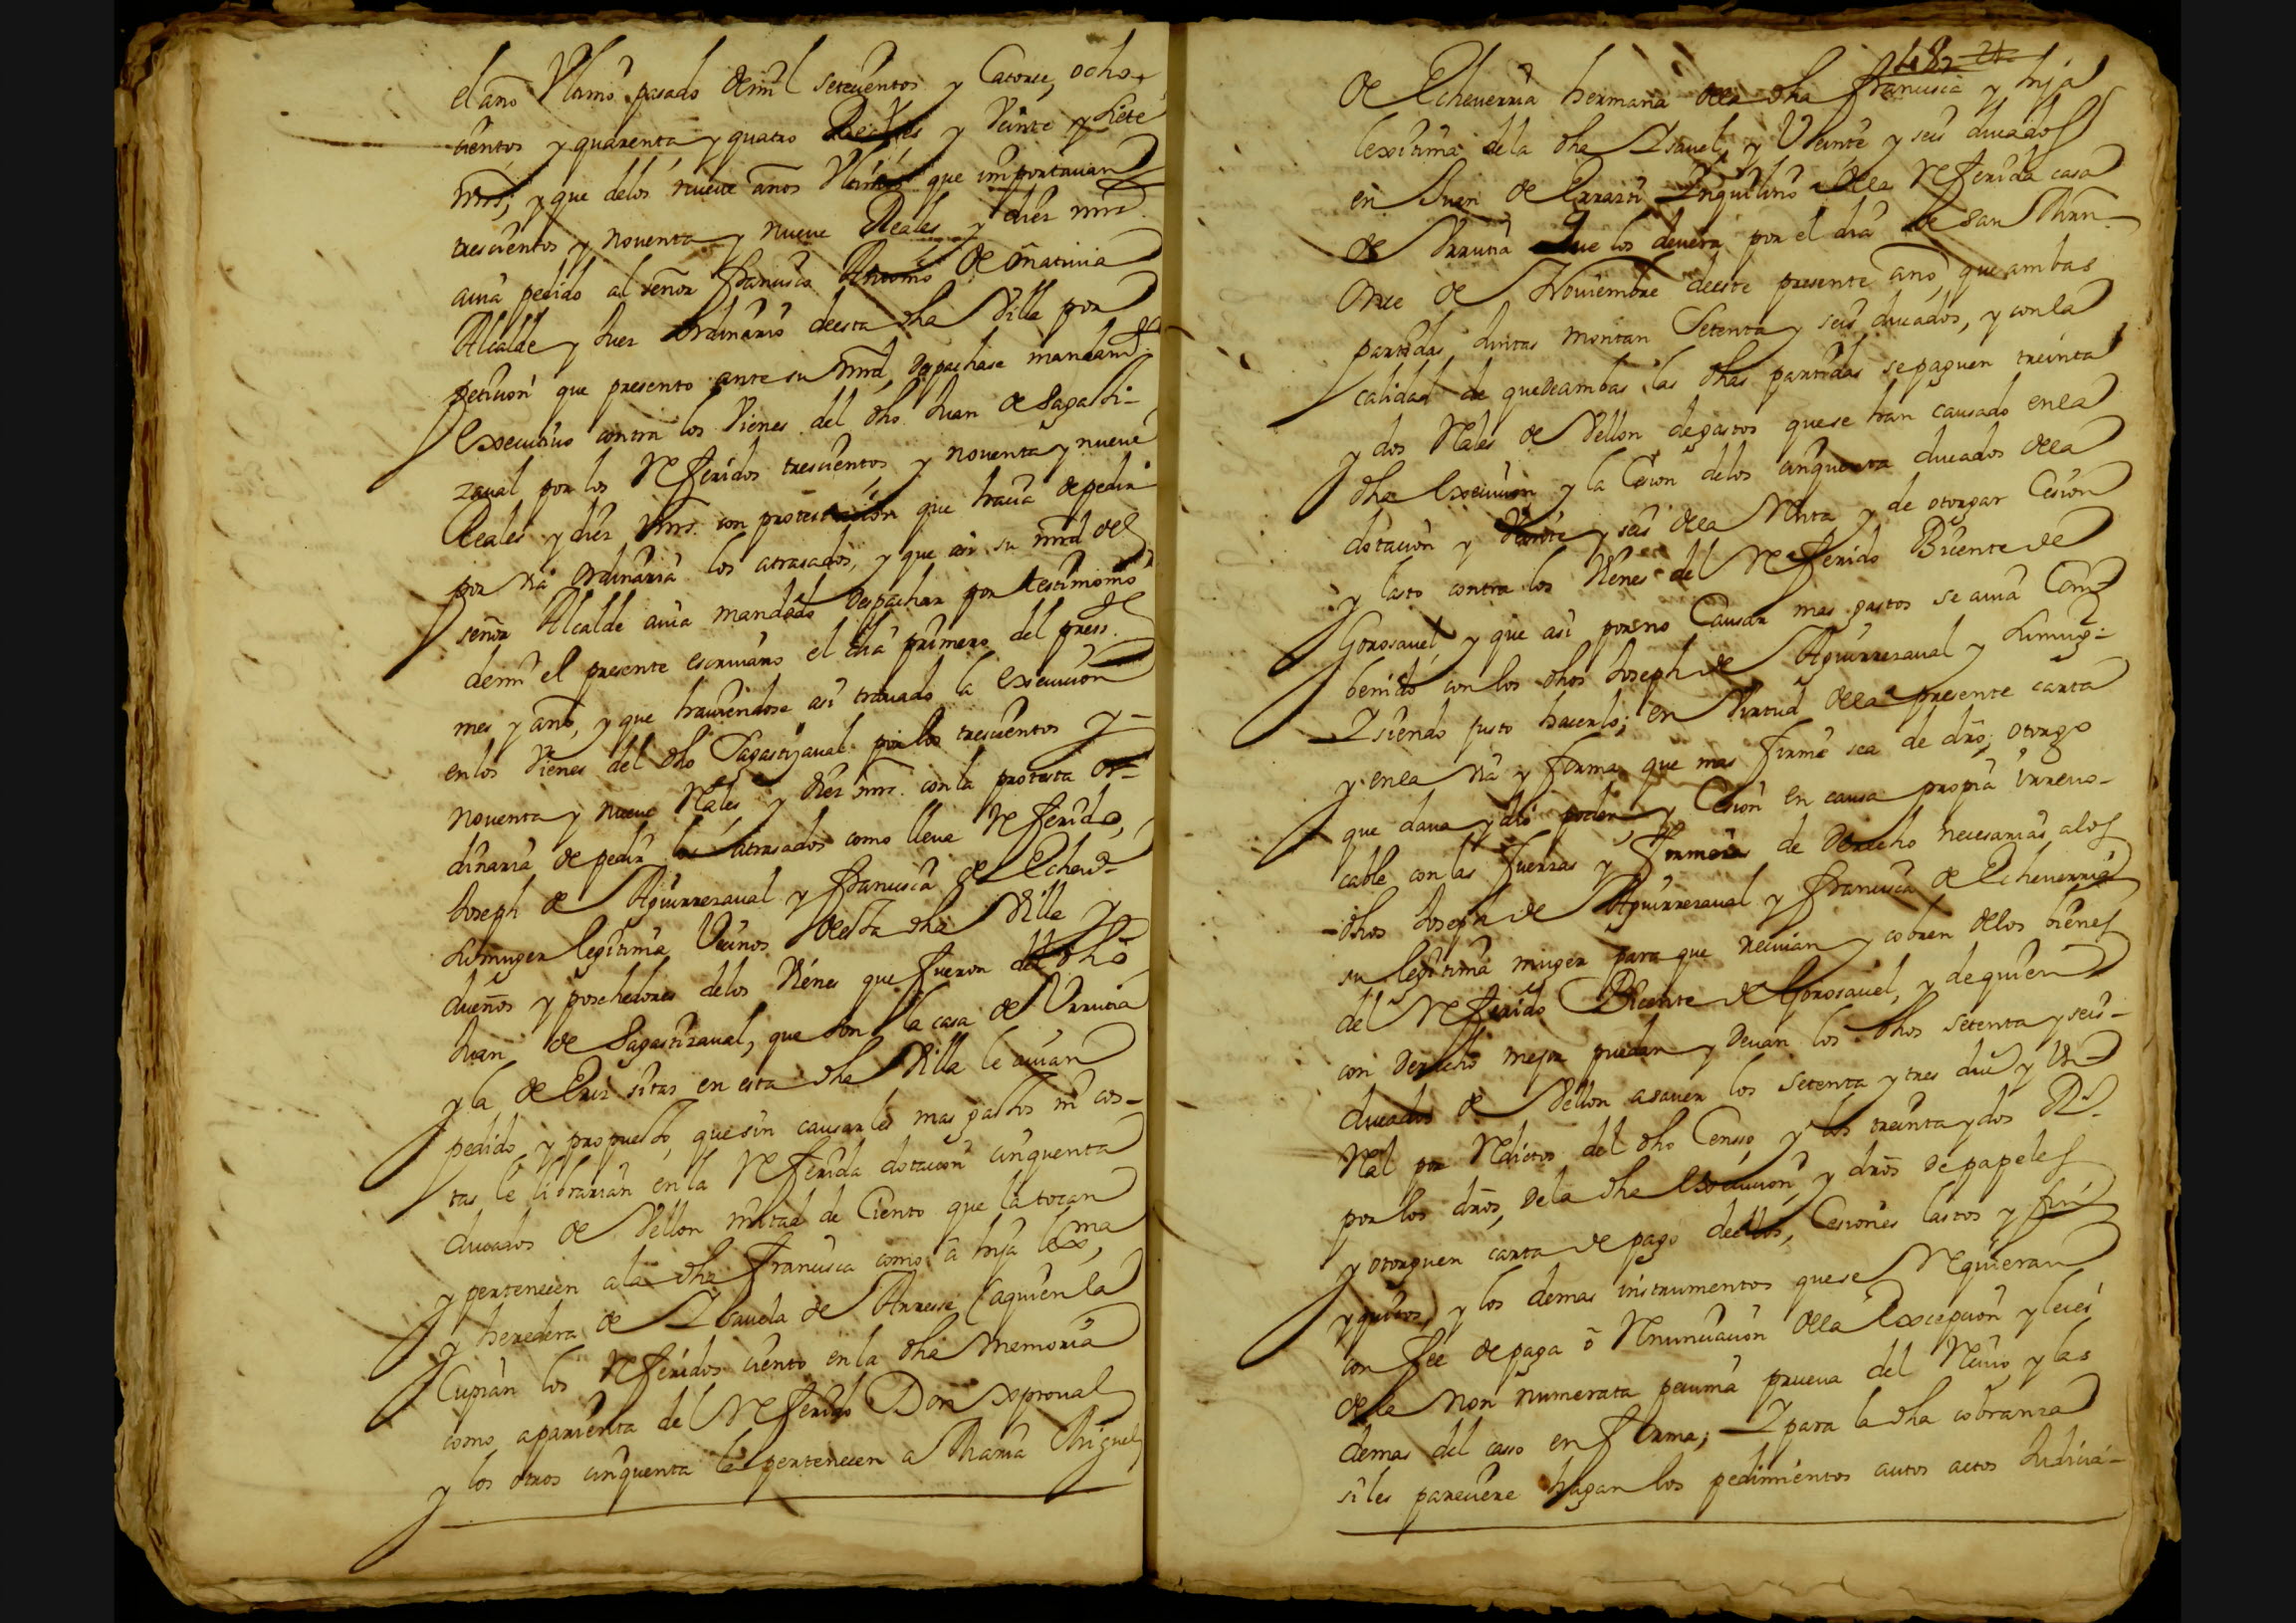 el año Vltimo pasado de mil setecientos y Catorce, ocho
cientos y quarenta y quatro Reales y Veinte y siete
mrs; y que de los nueve años Vltimos que importauan
trescientos y noventa y nueve Reales y diez mrs
auia pedido al señor francisco Antonio de
Alcalde y Juez ordinario de esta dha Villa por
peticion que presento ante su mrd, despachase mandamto
Executiuo contra los Vienes del dho Juan de Sagasti-
zaual por los Referidos trescientos y noventa y nueve
Reales y diez mrs. con protestacion que hacia de pedir
por via ordinaria los atrasados, y que asi su mrd del
señor Alcalde auia mandado despachar por testimonio
de mi el presente escriuano el dia primero del presste
mes y año, y que hauiendose asi trauado la Execucion
en los Vienes del dho Sagastizaual por los trescientos y
noventa y nueve Rales y diez mrs. con la protesta or-
dinaria de pedir los atrasados como lleua Referido,
Joseph de Aguirrezaual y francisca de Echeva
su muger legitima Vecinos de esta dha Villa y
dueños y posehedores de los Vienes que fueron del dho
Juan de Sagastizaual, que son la casa de Vrrutia
y la de sitas en esta dha Villa le auian
pedido y propuesto, que sin causarles mas gastos ni cos-
tas le librarian en la Referida dotacion cinquenta
ducados de Vellon mitad de Ciento que la tocan
y pertenecen a la dha francisca como a hija lexma
y heredera de Isauela de Arresse (a quien la
Cupian los Referidos ciento en la dha memoria
como aparienta del Referido Don xptoual
y los otros cinquenta le pertenecen a Maria Miguel
182 21
de Echeuerria hermana de la dha francisca y hija
lexitima de la dha Isauel, y Veinte y seis ducados
en Juan de Errazu Inquilino de la Referida casa
de Vrrutia que los deuera por el dia de san Mrn
Once de Nouiembre de este presente año, que ambas
partidas Juntas montan Setenta y seis ducados, y con la
calidad de que de ambas las dhas partidas se paguen treinta
y dos Rales de Vellon de gastos que se han causado en la
dha Execucion y la Cesion de los cinquenta ducados de la
dotacion y Veinte y seis de la Renta y de otorgar Cesion
y lasto contra los Vienes del Referido Bicente de
Gorosauel, y que asi por no Causar mas gastos se auia Com
benido con los dhos Joseph de Aguirrezaual y su mugr
Y siendo justo hacerlo; en Virtud de la presente carta
y en la via y forma que mas firme sea de dro; otorgo
que daua y dio poder y Cesion en causa propia irreuo-
cable con las fuerzas y firmezas de derecho necesarias a los
dhos Joseph de Aguirrezaual y francisca de Echeuerria
su legitima muger para que reciuan y cobren de los bienes
del Referido Bicente de Gorosauel, y de quien
con derecho mejor puedan y deuan los dhos setenta y seis
ducados de Vellon a sauer los setenta y tres dus y Vn
Ral por Reditos del dho Censso, y los treinta y dos Rs
por los dros, de la dha Execucion, y dros de papeles
y otorguen carta de pago de ellos, Cesiones lastos y fin
y quitos, y los demas instrumentos que se Requieran
con fee de paga o Renunciacion de la Excepcion y leies
de la non numerata pecunia prueua del Reciuo y las
demas del caso en forma; Y para la dha cobranza
si les pareciere hagan los pedimientos autos actos Judicia-